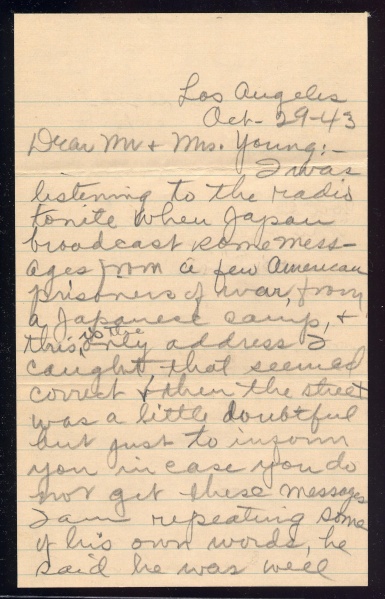 Los Angeles
Oct- 29-43
Dear Mr + Mrs. Young:-
I was
listening to the radio
tonite when Japan
broadcast some mess-
ages from a few American
prisoners of war, from
a Japanese camp, +
this, is the only address I
caught that seemed
correct & then the street
was a little doubtful
but just to inform
you in case you do
not get these messages
I am repeating some
of his own words, he
said he was well